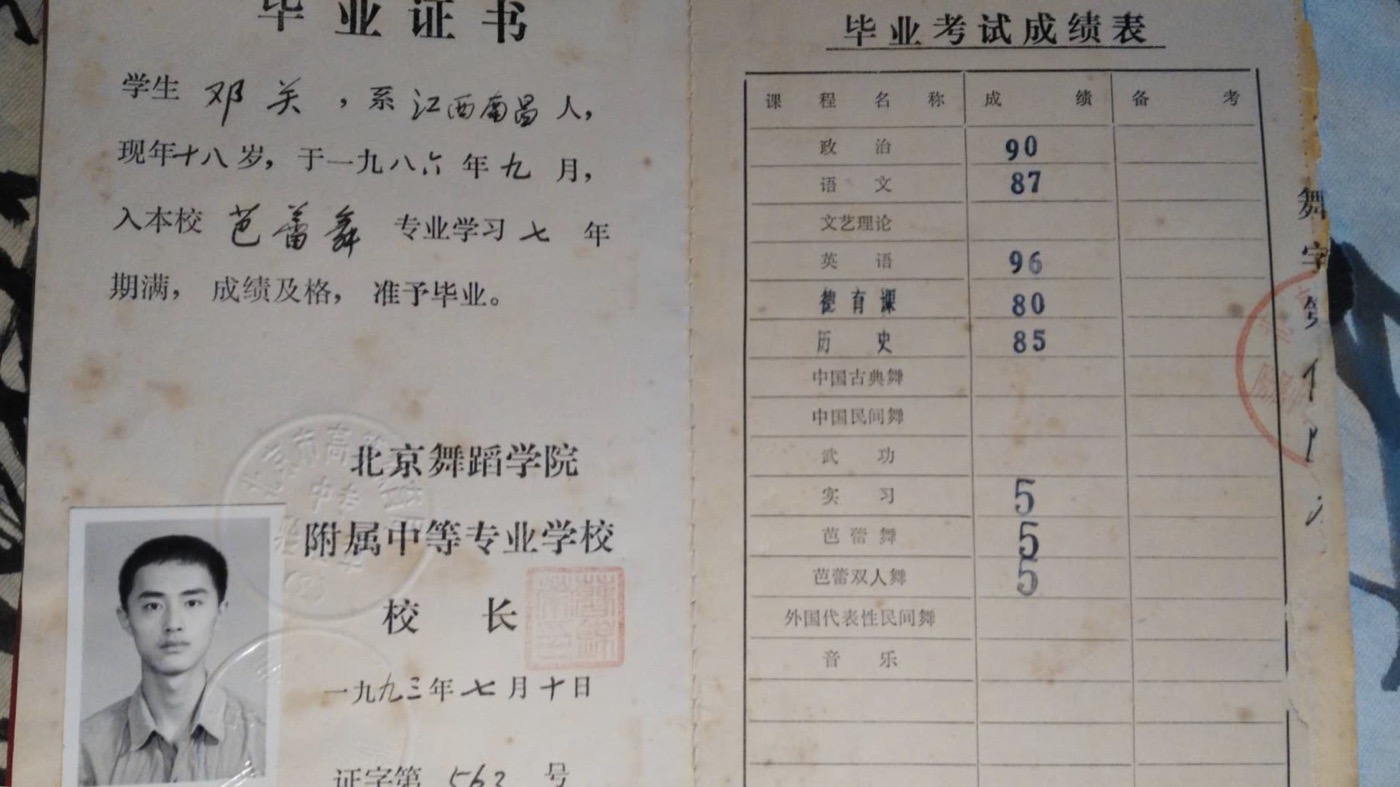 毕业证书
学生 邓关，系江西南昌人，
现年十八岁，于一九八六年九月，
入本校 芭蕾舞 专业学习七年
期满，成绩及格，准予毕业。
北京舞蹈学院
附属中等专业学校
校长
一九九三年七月十日
证字第 562 号
毕业考试成绩表
课程名称 成绩 备考
政治 90
语文 87
文艺理论
英语 96
德育课 80
历史 85
中国古典舞
中国民间舞
武功
实习 5
芭蕾舞 5
芭蕾双人舞 5
外国代表性民间舞
音乐
舞字第